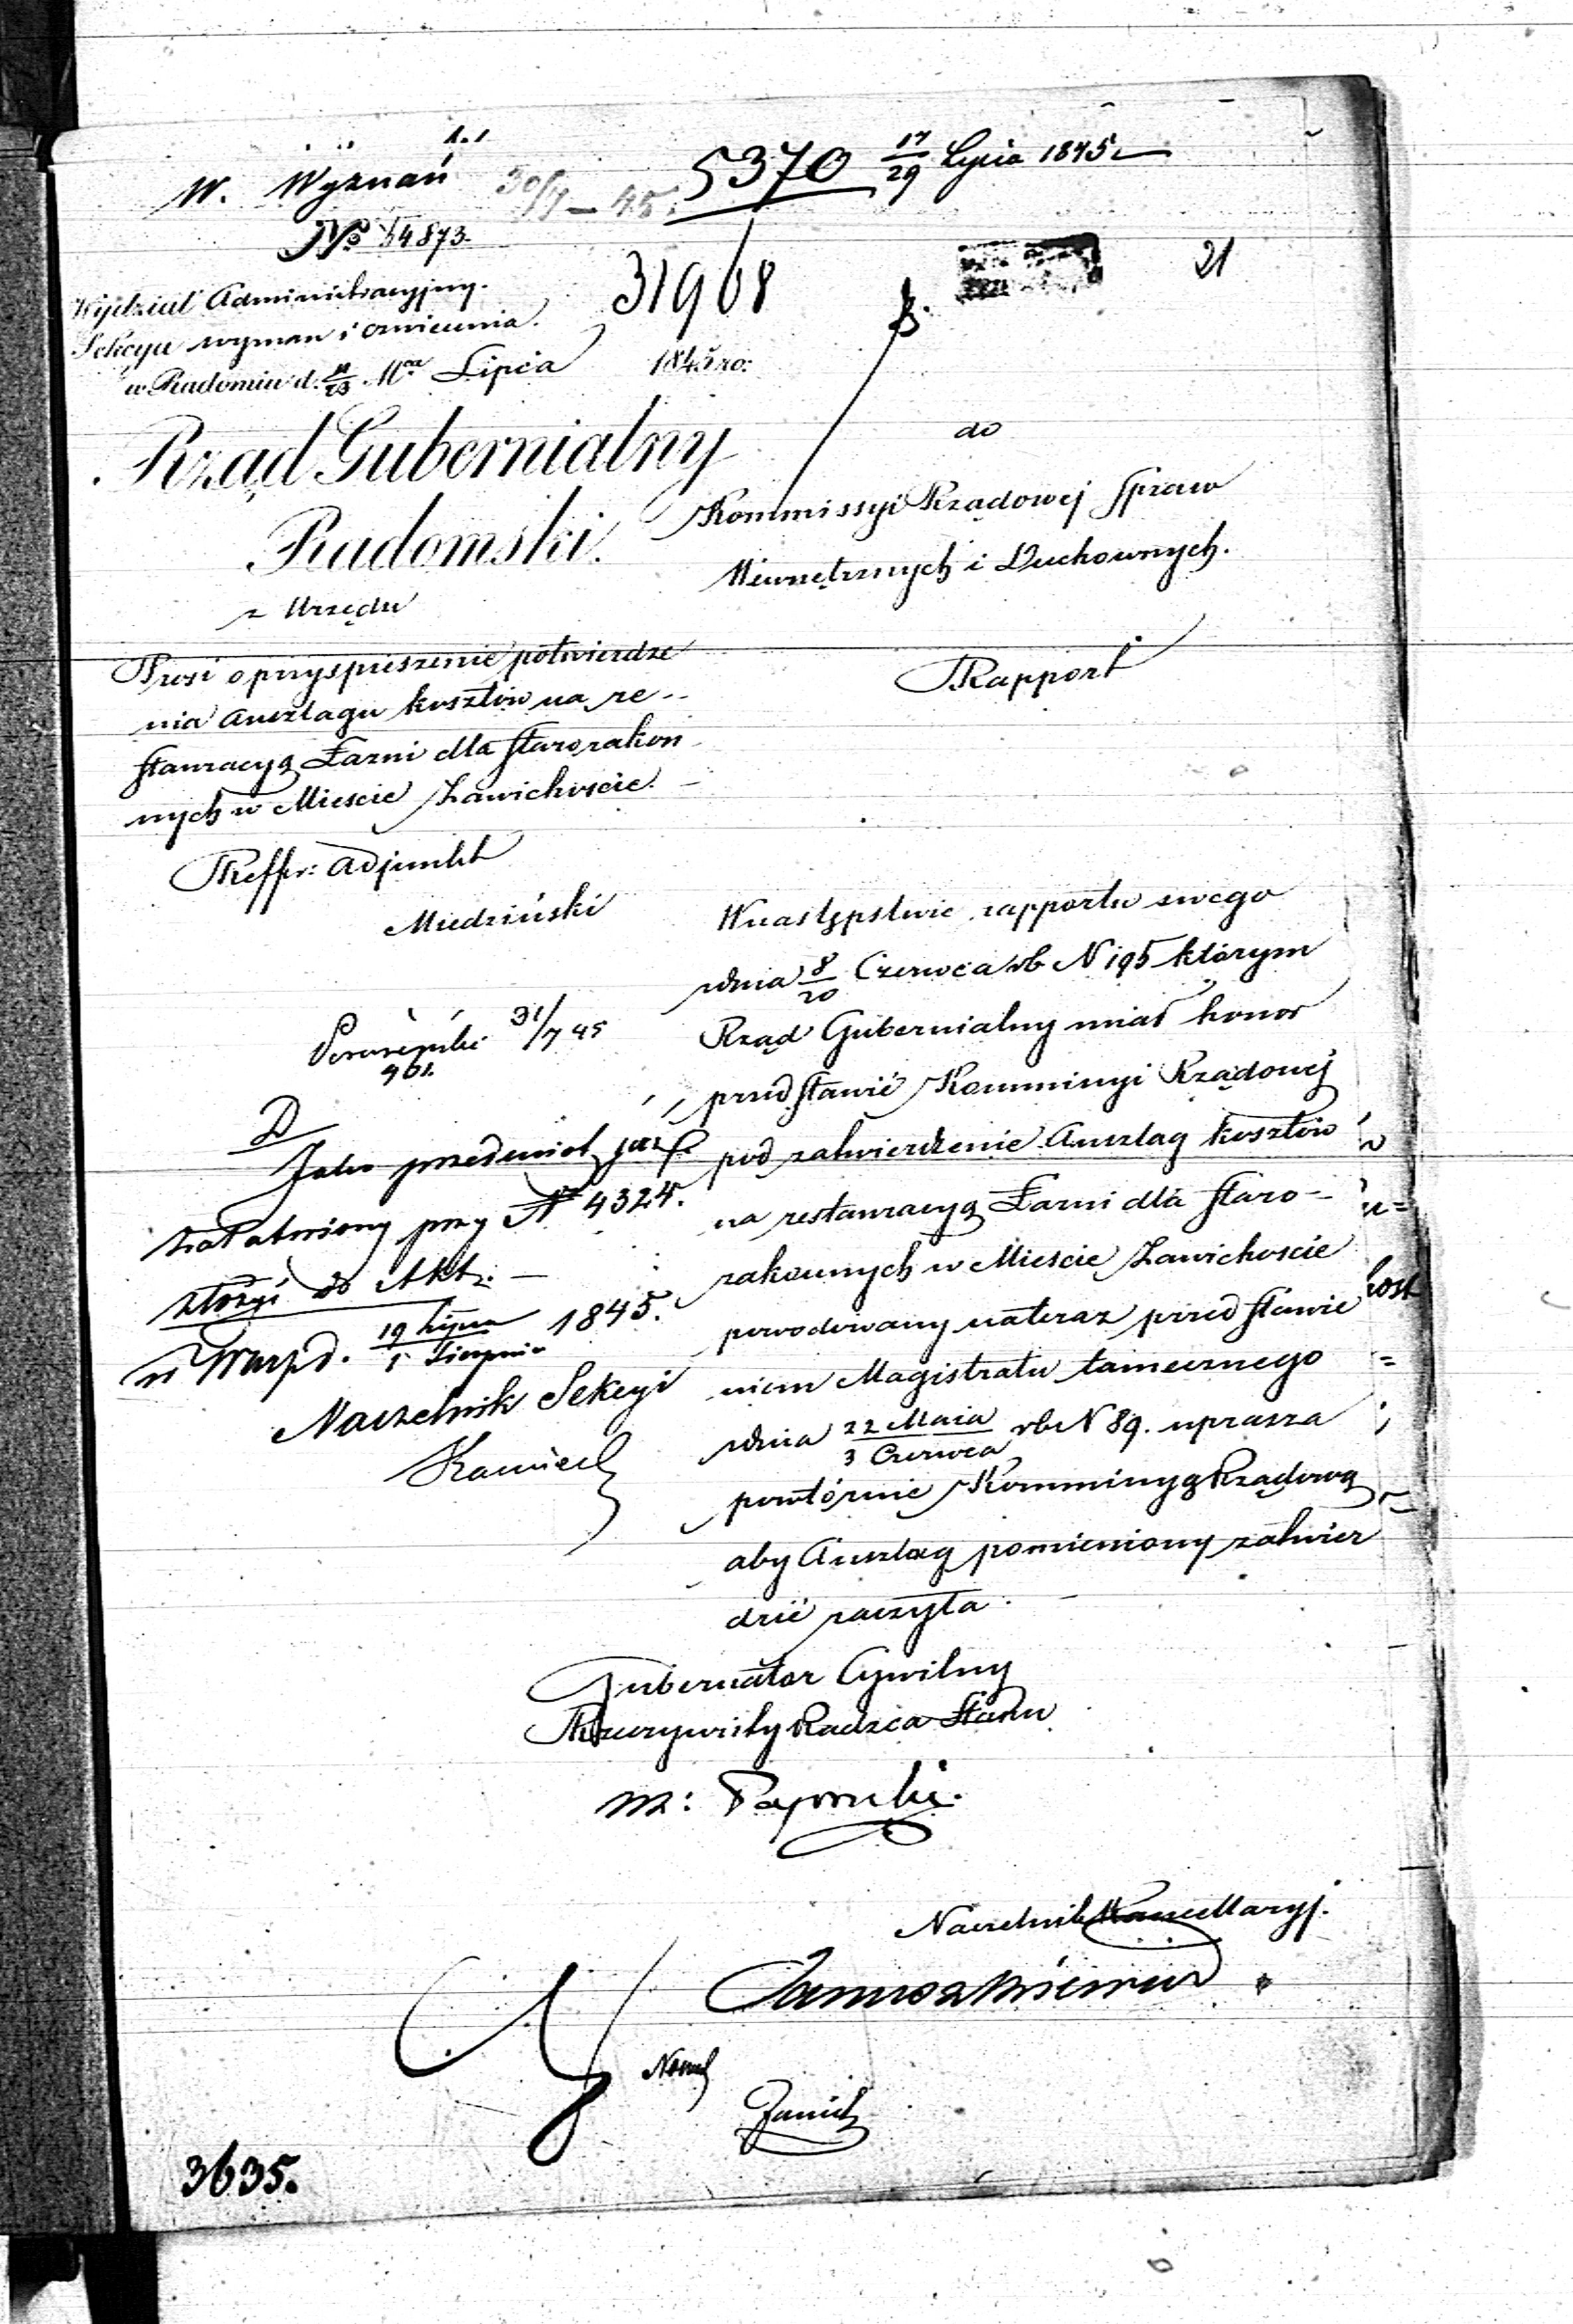 W. Wyznań
5370 17/29 Lipca 1845
30/7 – 45.
№ 54873.
31968
21
Wydział Administracyjny.
Sekcya wyznań i oświecenia.
w Radomiu d. 11/23 Mca Lipca 1845 ro:
Rząd Gubernialny
Radomski.
z Urzędu
do
Kommissyi Rządowej Spraw
Wewnętrznych i Duchownych.
Prosi o przyspieszenie potwierdze
nia Anszlagu kosztów na re-
stauracyą Łazni dla starozakon
nych w Mieście Zawichoście.
Rapport
Reffer: Adjunkt
Miedziński
31/7 45
Jako przedmiot już
załatwiony przy N 4324.
złożyć do Akt. –
w Warsz d. 19 Lipca / 1 Sierpnia 1845.
Naczelnik Sekcyi
W następstwie rapportu swego
zdnia 8/20 Czerwca rb N 195 którym
Rząd Gubernialny miał honor
przedstawić Kommissyi Rządowej
pod zatwierdzenie Anszlag kosztów
na restauracyą Łazni dla staro-
zakonnych w Mieście Zawichoście
powodowany nateraz przedstawie
niem Magistratu tamecznego
zdnia 22 Maia / 3 Czerwca rb N 89. uprasza
powtórnie Kommissyą Rządową
aby Anszlag pomieniony zatwier
dzić raczyła.
Gubernator Cywilny
Rzeczywisty Radzca Stanu
Naczelnik Kancellaryi.
3635.